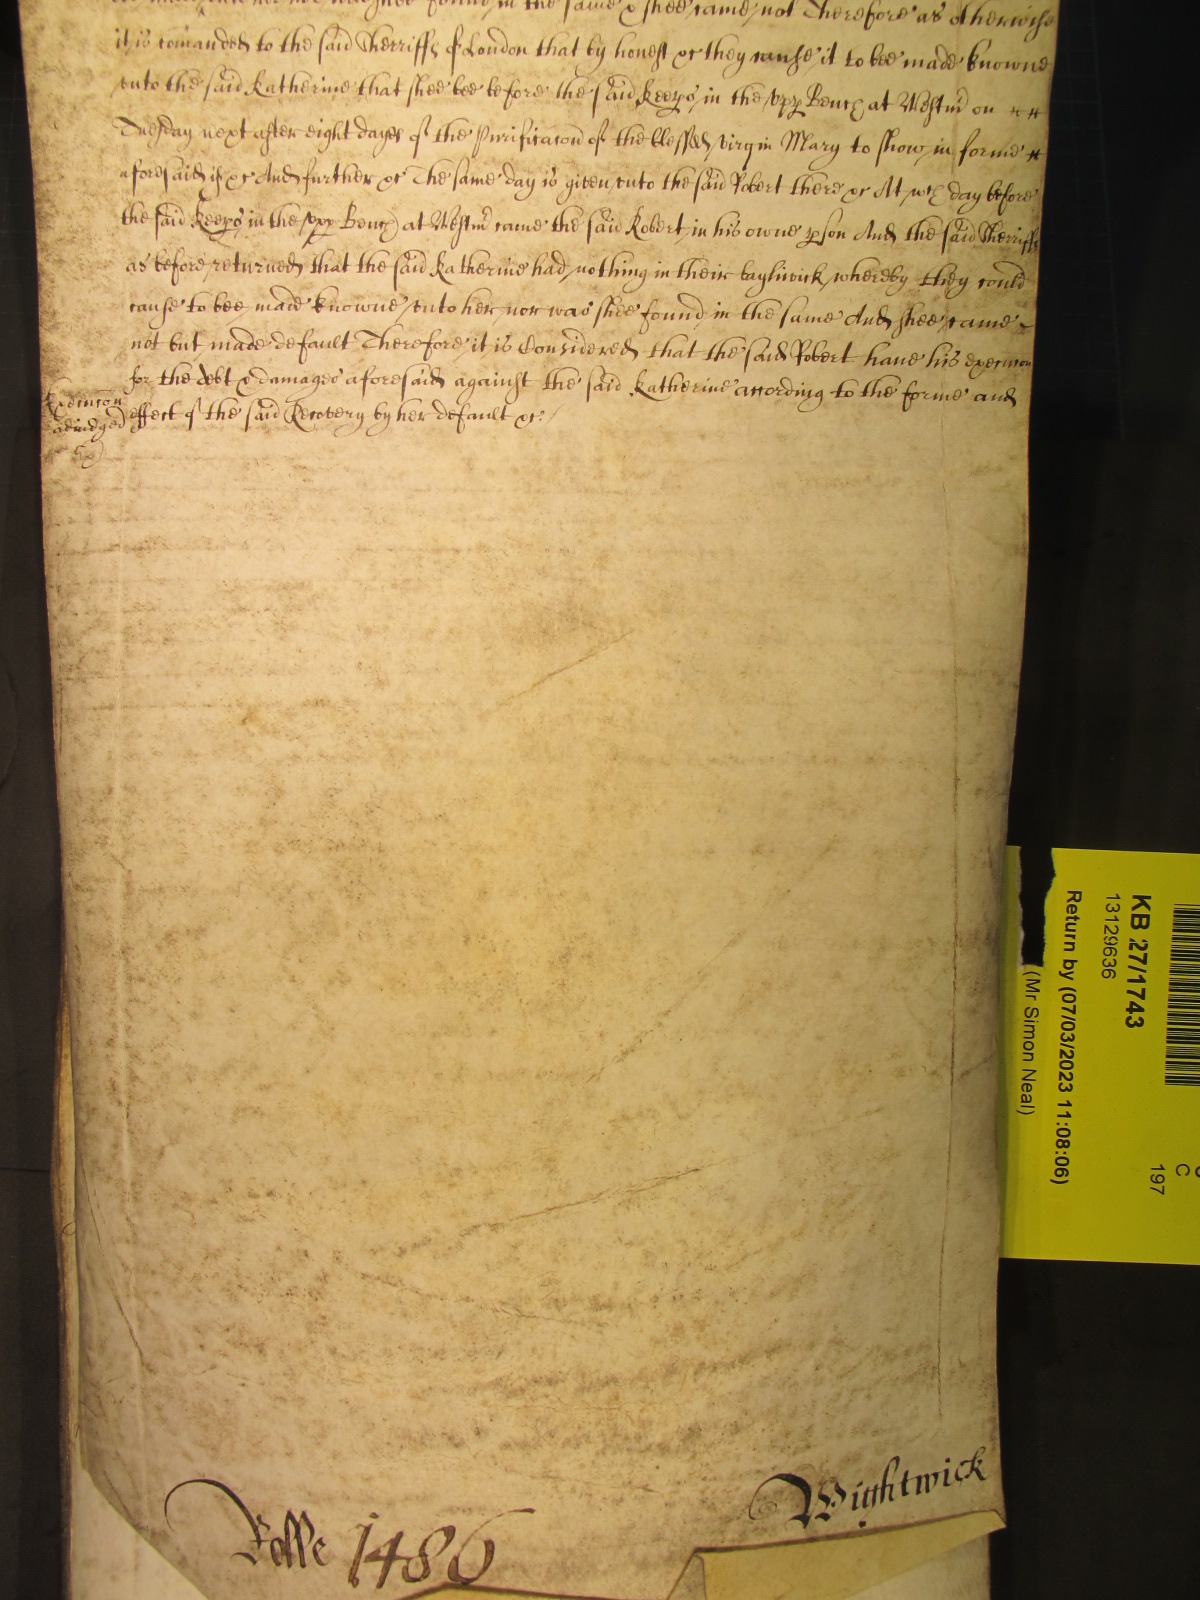 found in the same & shee came not Therefore as otherwise
it is comanded to the said Sherriffs of London that by honest &c they cause it to bee made knowne
vnto the said Katherine that shee bee before the said Keeps in the vpp Bench at Westmr on
Tuesday next after eight dayes of the Purificacon of the blessed virgin Mary to show in forme
aforesaid if &c And further &c The same day is given vnto the said Robert there &c At wch day before
the said Keeps in the vpp Bench at Westmr came the said Robert in his owne pson And the said Sherriffs
as before returned that the said Katherine had nothing in their baylywick whereby they could
cause to bee made knowne vnto her nor was shee found in the same And shee came
not but made default Therefore it is Considered that the said Robert have his execucon
for the debt & damages aforesaid against the said Katherine according to the forme and
effect of the said Recovery by her default &c
Execucon
adiudged
Rolle 1486
Wightwick
KB 27/1743
13129636
Return by (07/03/2023 11:08:06)
(Mr Simon Neal)
C
197